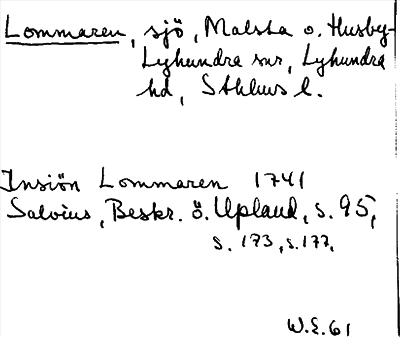 Lommaren, sjö, Malsta o. Husby-
Lyhundra snr, Lyhundra
hd, Sthlms l.
Insiön Lommaren 1741
Salvius, Beskr. ö. Upland, s. 95,
s. 173, s. 177.
W.E. 61